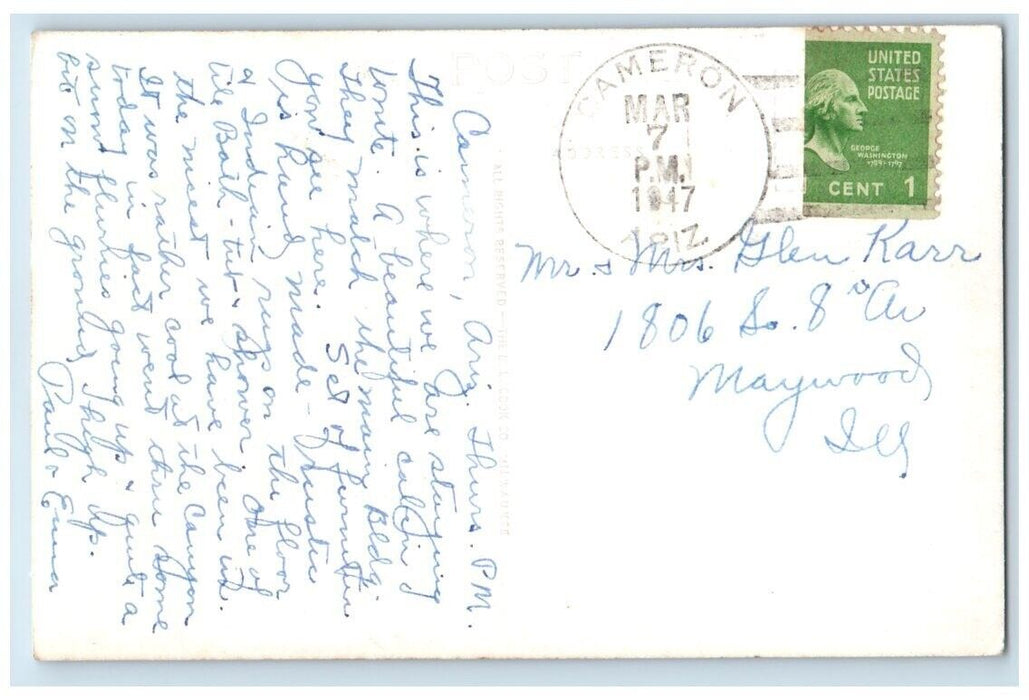 Cameron, Ariz. Thurs. P.M.
This is where we are staying
tonite. A beautiful cabin &
they match the main Bldg.
you see here. Set of furniture
is hand made - rustic
& Indian rugs on the floor
tile Bath - tub & shower. One of
the nicest we have been in.
It was rather cool at the Canyon
today in fact went thru some
snow flurries going up & quite a
bit on the ground, high up.
Paul & Erna
POST
ADDRESS
CAMERON
MAR
7
P.M.
1947
ARIZ.
UNITED
STATES
POSTAGE
GEORGE
WASHINGTON
1789-1797
1 CENT 1
Mr. & Mrs. Glen Karr
1806 So. 8" Av
Maywood
Ill
ALL RIGHTS RESERVED